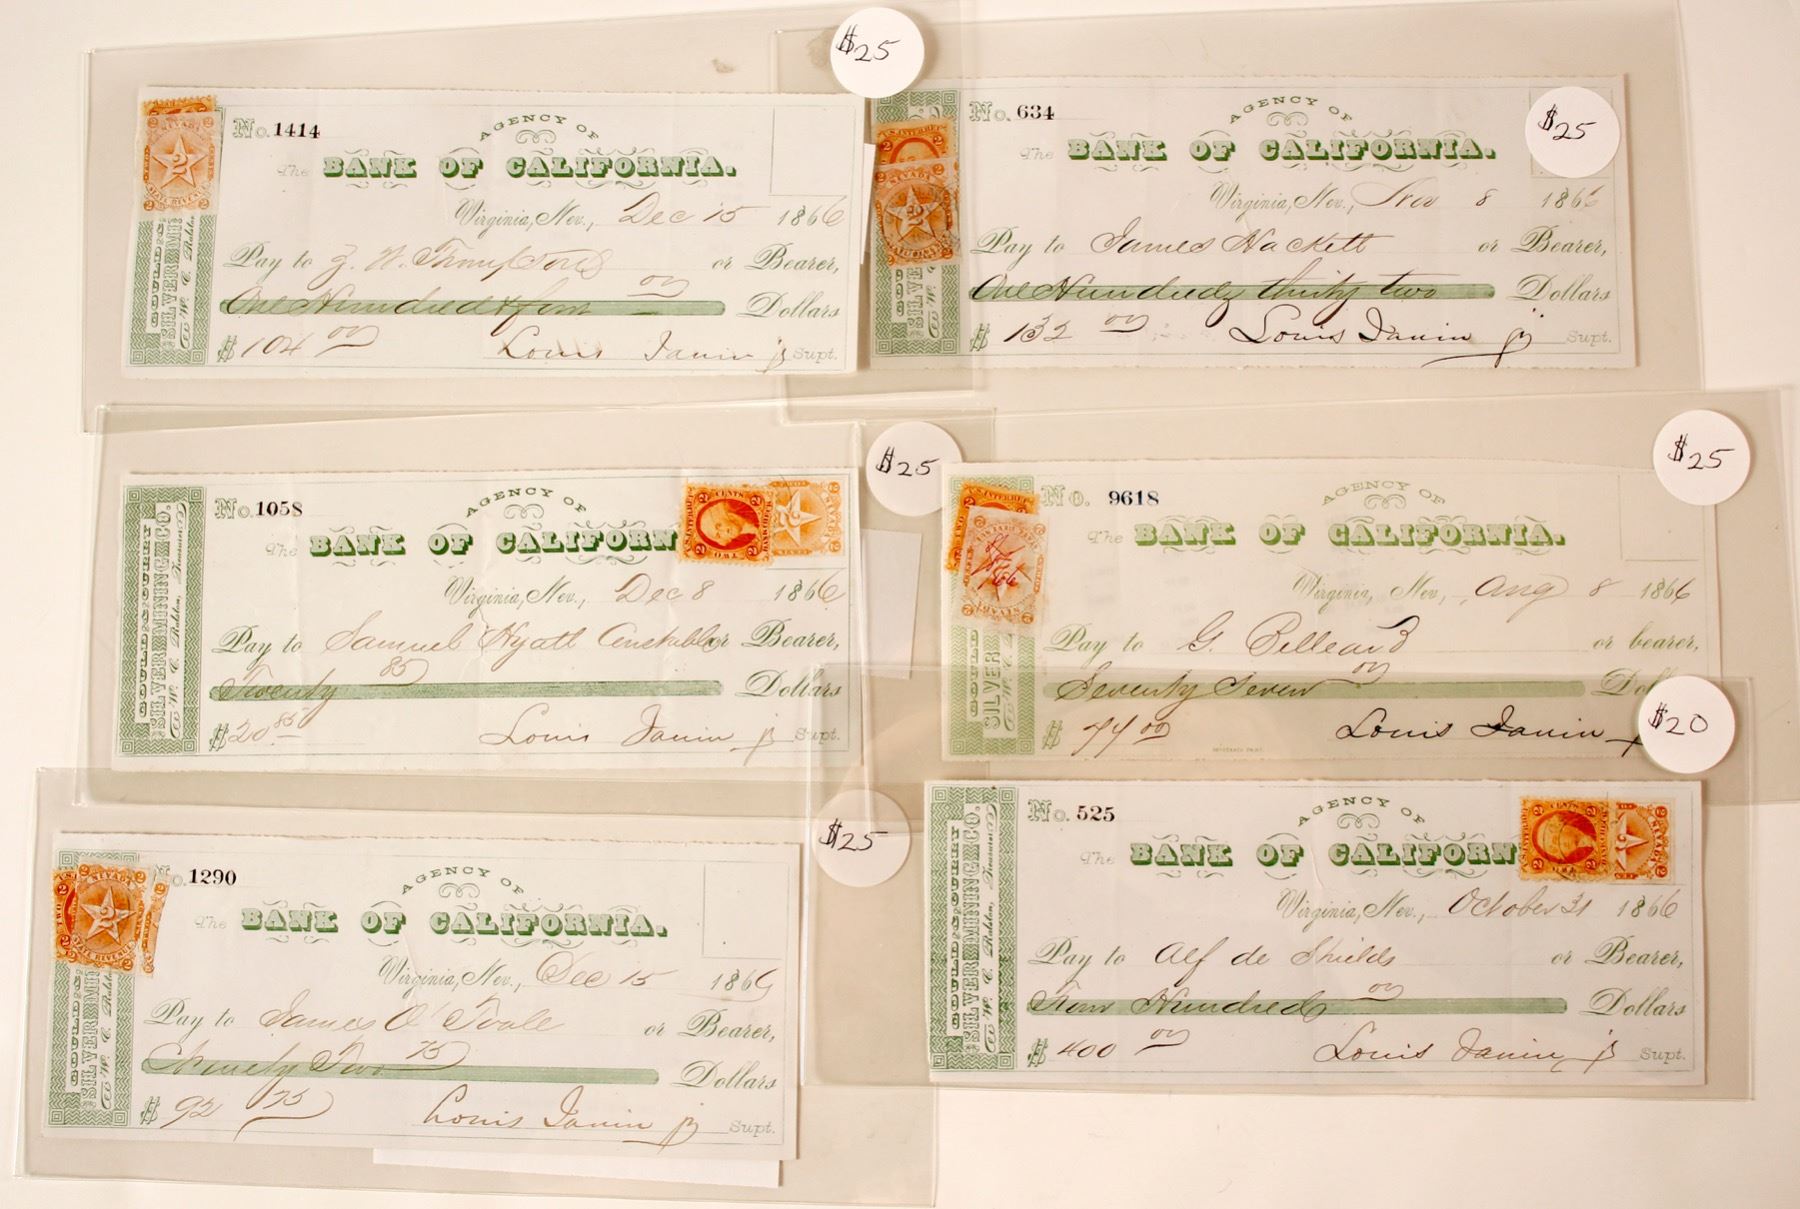 $25
No. 1414
AGENCY OF
The BANK OF CALIFORNIA.
Virginia, Nev., Dec 15 1866
Pay to or Bearer,
One Hundred & four 00 Dollars
$ 104 00 Louis Janin Jr Supt.
GOULD &
SILVER MI
W. C. Ralsto
2
NEVADA
STATE REVENUE
$25
No. 634
AGENCY OF
The BANK OF CALIFORNIA.
Virginia, Nev., Nov 8 1866
Pay to James Hackett or Bearer,
One Hundred thirty two Dollars
$ 132 00 Louis Janin Jr Supt.
U.S. INTER. REV.
NEVADA
2
SILVER
$25
No. 1058
AGENCY OF
The BANK OF CALIFORN
Virginia, Nev., Dec 8 1866
Pay to Samuel Hyatt Constable or Bearer,
Twenty 85 Dollars
$ 20 85 Louis Janin Jr Supt.
GOULD & CURRY
SILVER MINING CO.
W. C. Ralston, Treasurer
2 CENTS 2
TWO
$25
No. 9618
AGENCY OF
The BANK OF CALIFORNIA.
Virginia, Nev., Aug 8 1866
Pay to G. Billeard or bearer,
Seventy Seven 00 Dol
$ 77 00 Louis Janin
SILVER
$25
No. 1290
AGENCY OF
The BANK OF CALIFORNIA.
Virginia, Nev., Dec 15 1866
Pay to James O'Toole or Bearer,
Ninety Two 75 Dollars
$ 92 75 Louis Janin Jr Supt.
GOULD &
SILVER MIN
W. C. Ralst
NEVADA
2
STATE REVENUE
$20
No. 525
AGENCY OF
The BANK OF CALIFORN
Virginia, Nev., October 31 1866
Pay to Alf de Shields or Bearer,
Four Hundred 00 Dollars
$ 400 00 Louis Janin Jr Supt.
GOULD & CURRY
SILVER MINING CO.
W. C. Ralston, Treasurer
2 CENTS 2